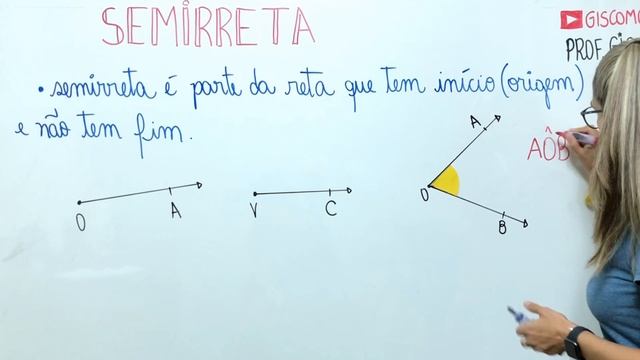 SEMIRRETA
GISCOM
PROF. GIS
• semirreta é parte da reta que tem início (origem)
e não tem fim.
A
AÔB
O
O A
V C
B